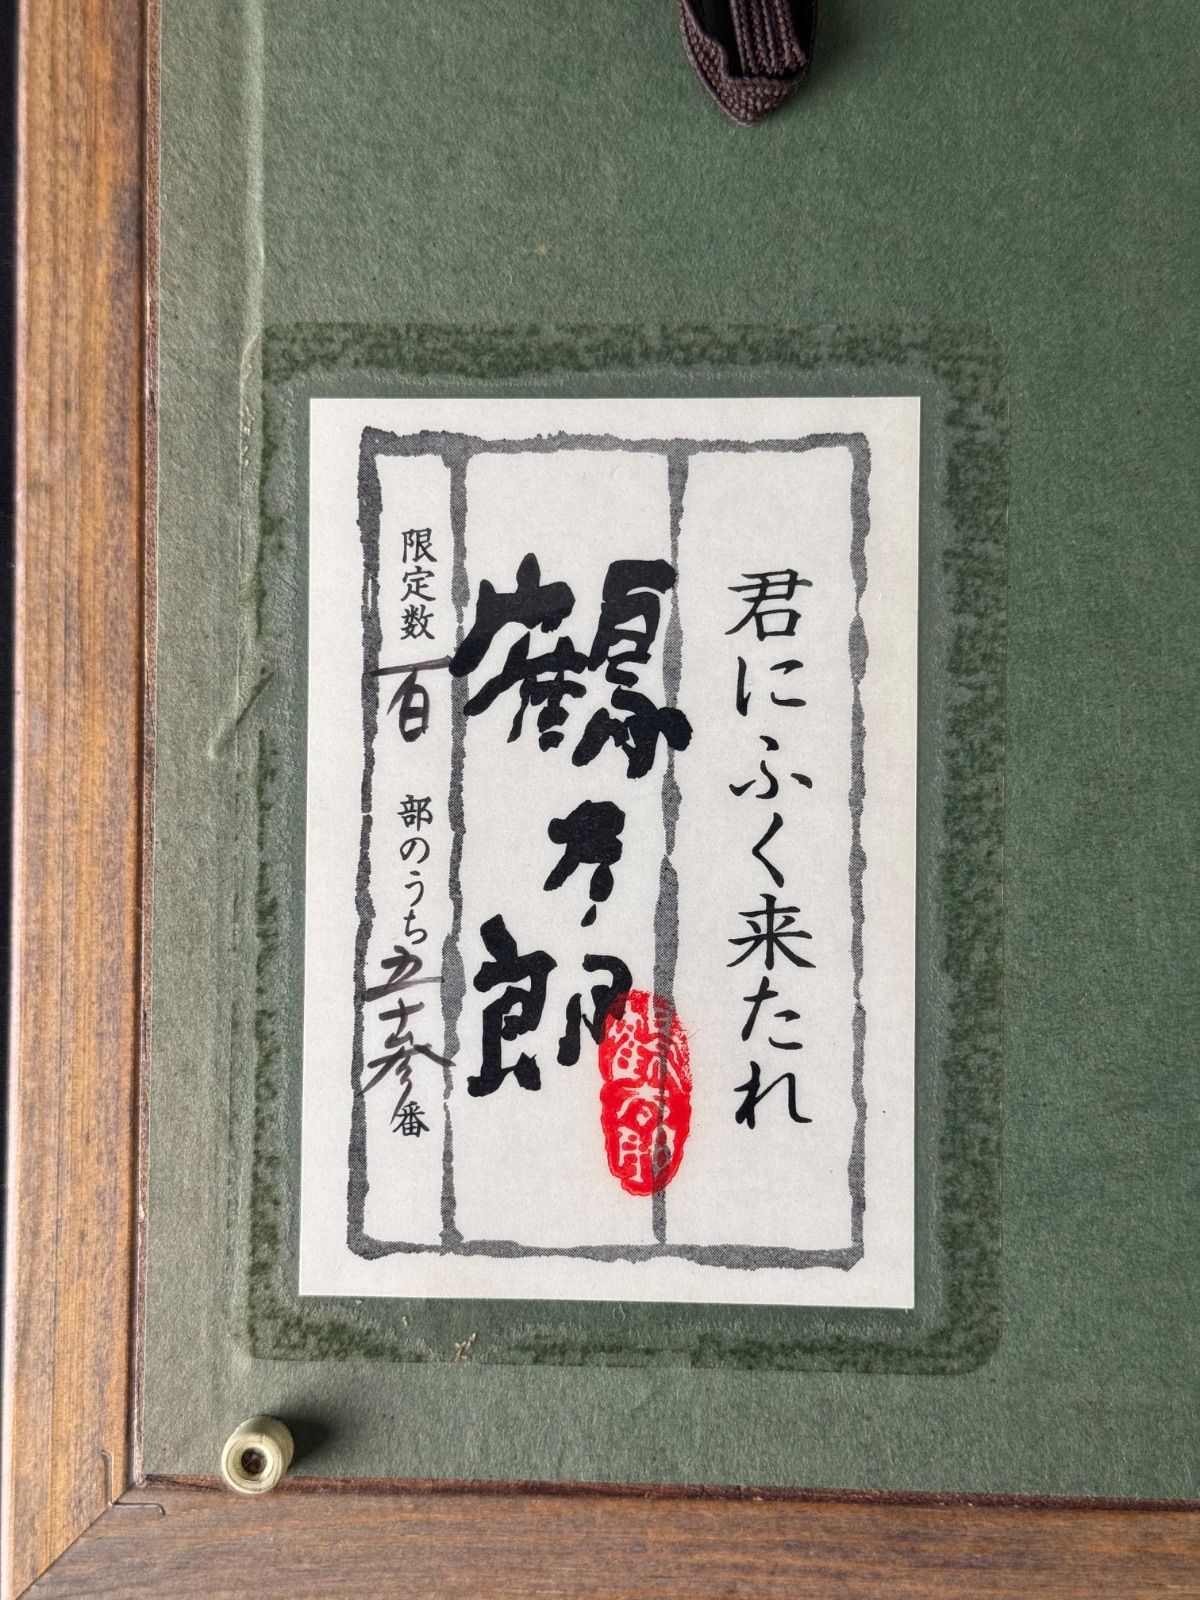 君にふく来たれ
鶴太郎
鶴太郎
限定数百 部のうち五十参番